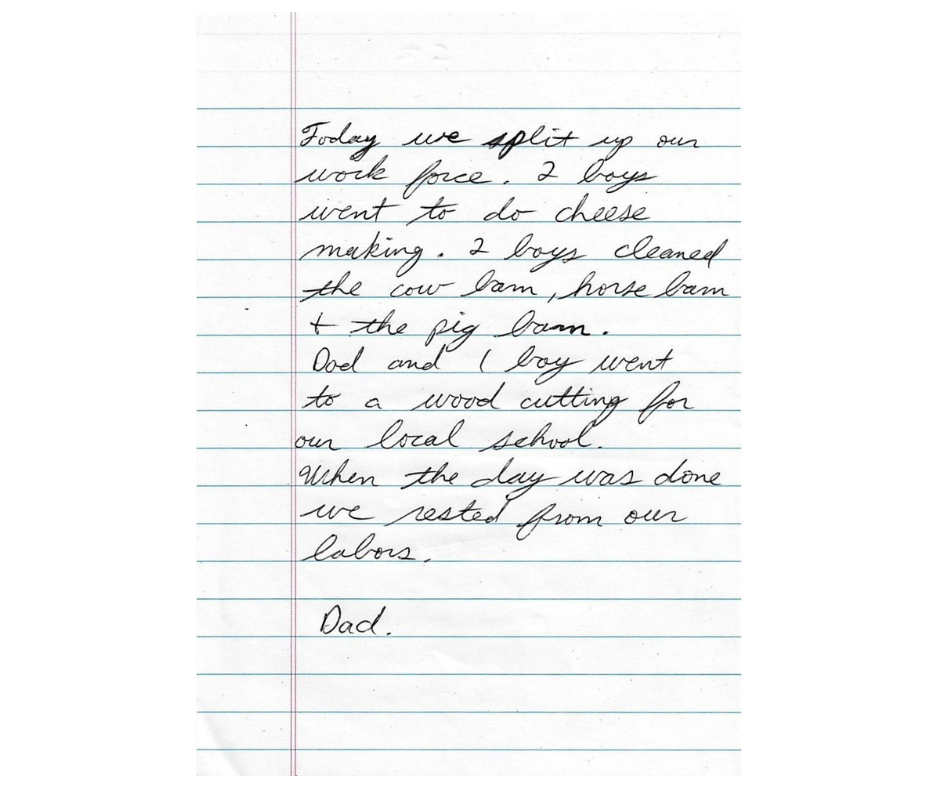 Today we split up our
work force. 2 boys
went to do cheese
making. 2 boys cleaned
the cow barn, horse barn
+ the pig barn.
Dad and 1 boy went
to a wood cutting for
our local school.
When the day was done
we rested from our
labors.
Dad.